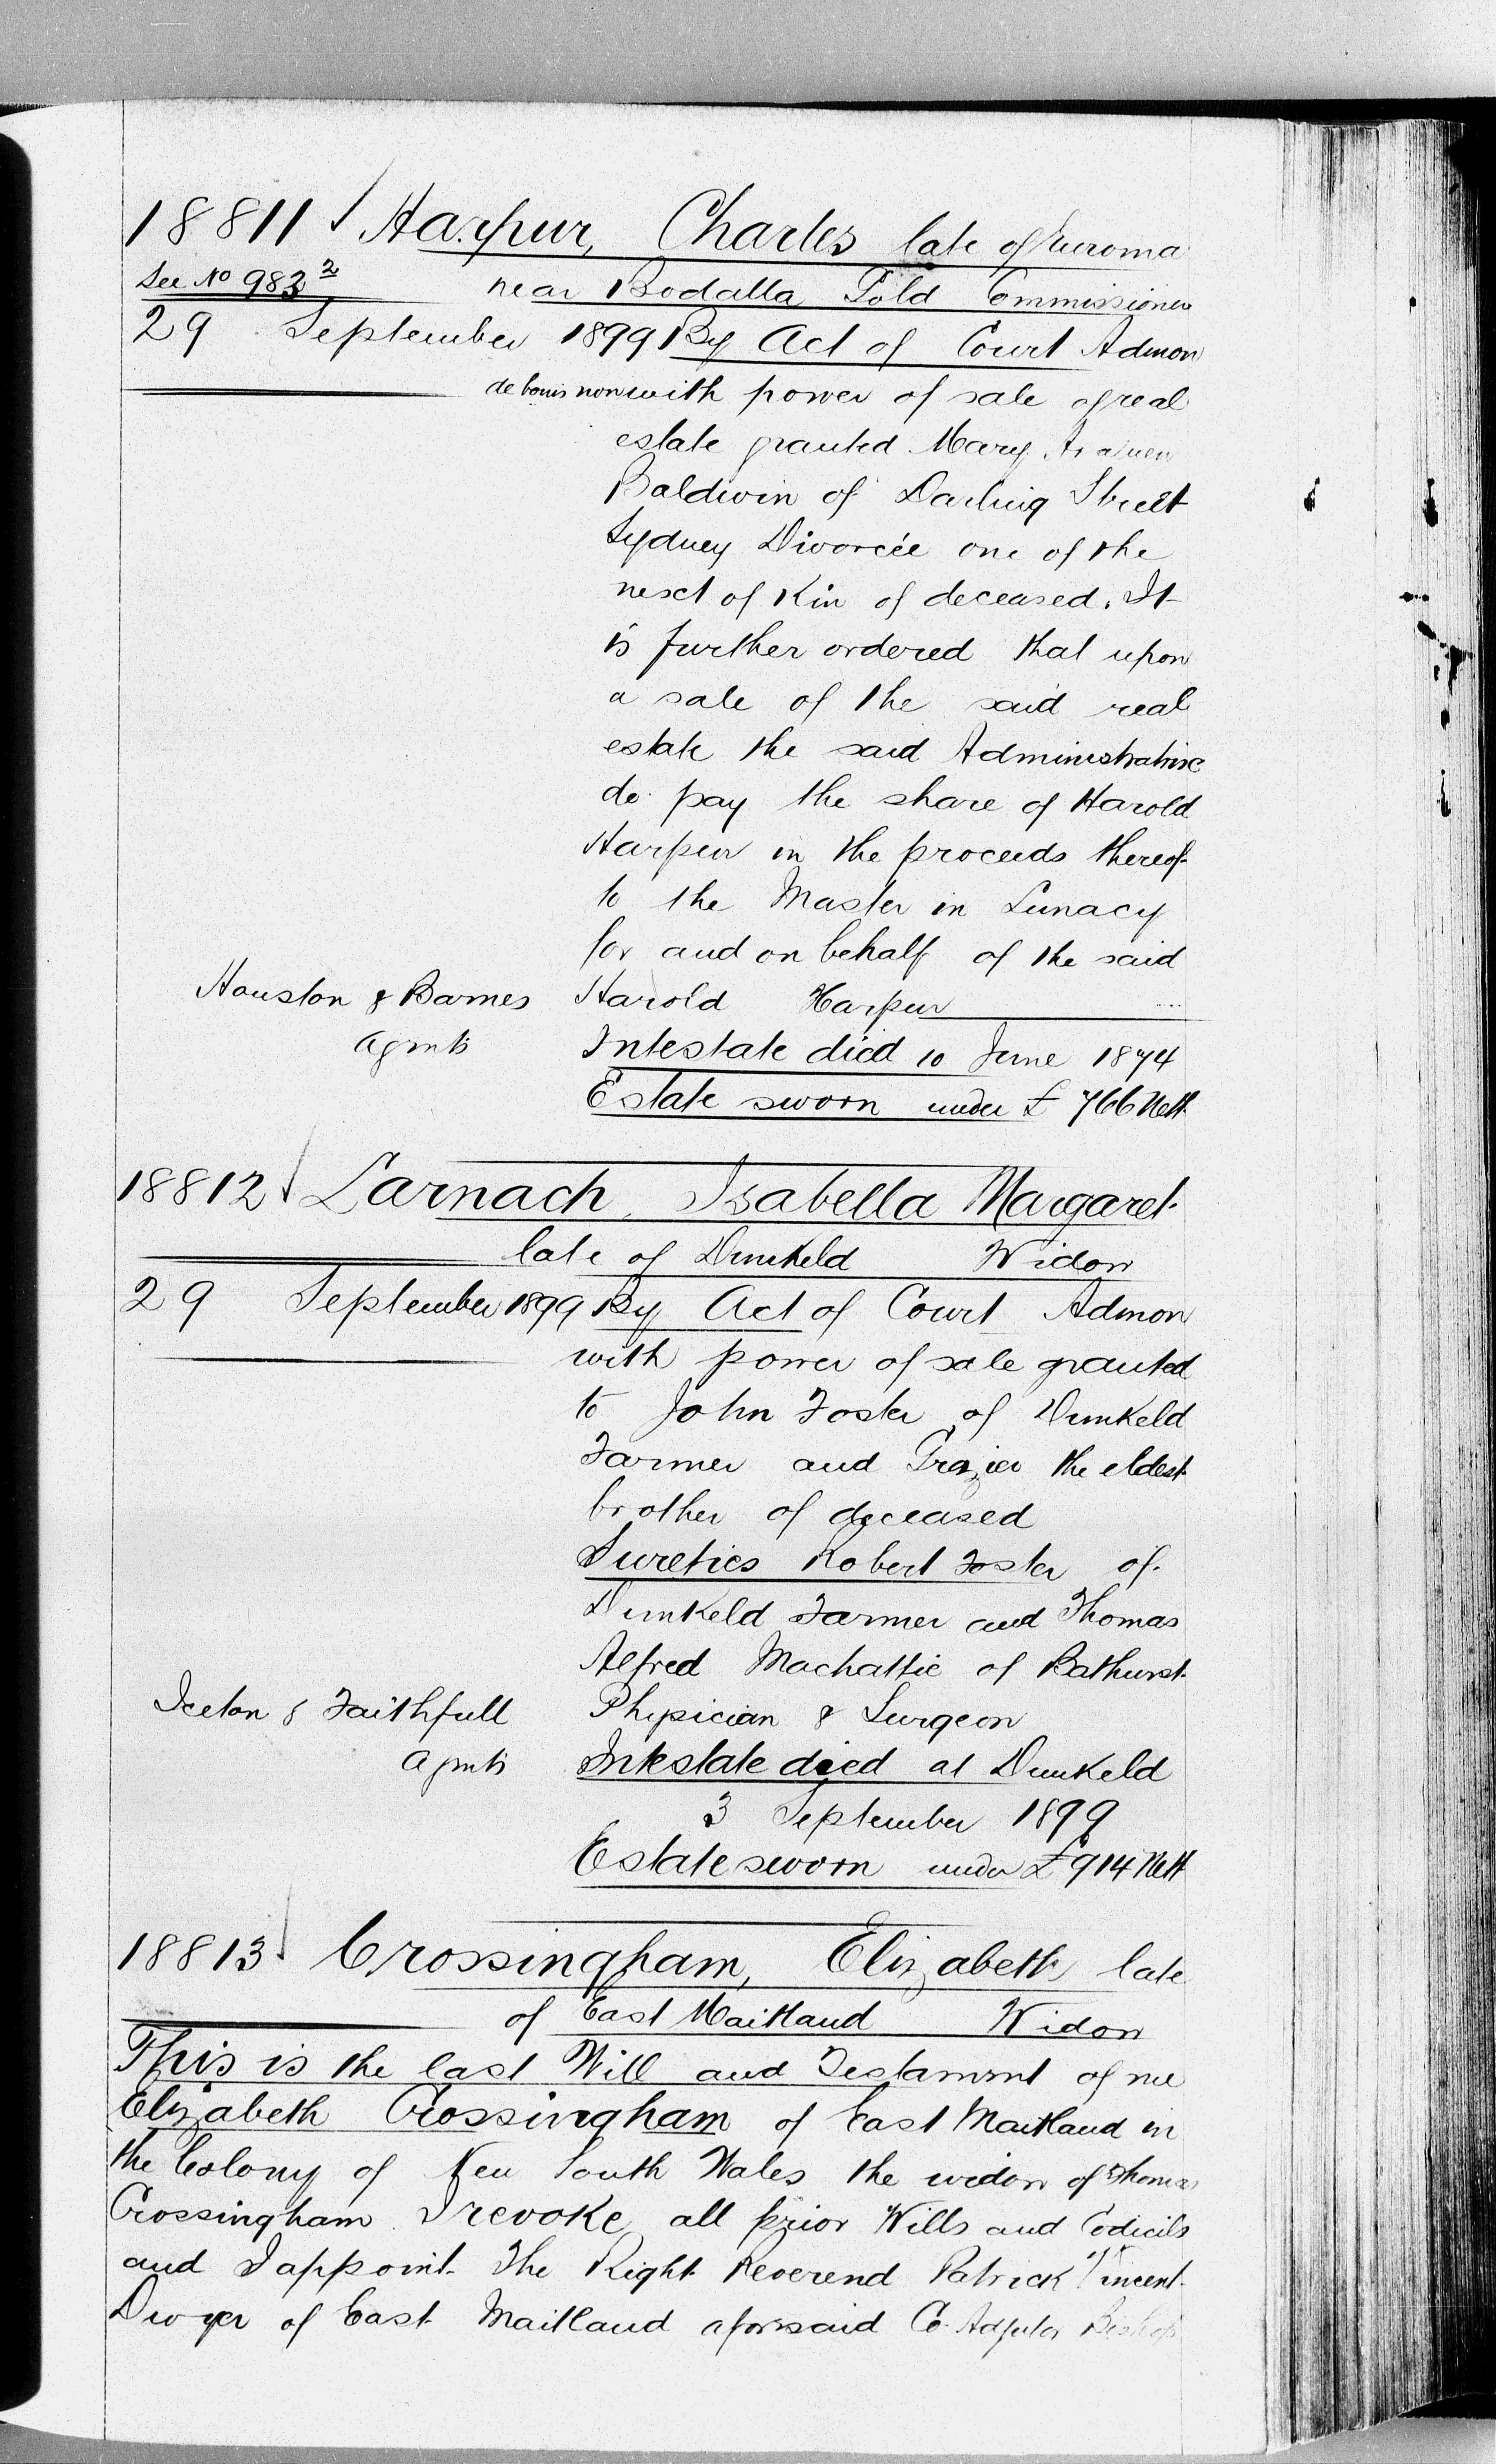 18811 Harpur, Charles late of Euroma
See No 983²
near Bodalla Gold Commissioner
29 September 1899 By Act of Court Admon
de bonis non with power of sale of real
estate granted Mary
Baldwin of Darling Street
Sydney Divorcée one of the
next of Kin of deceased. It
is further ordered that upon
a sale of the said real
estate the said Administratrix
do pay the share of Harold
Harpur in the proceeds thereof
to the Master in Lunacy
for and on behalf of the said
Houston & Barnes Harold Harpur
Agents Intestate died 10 June 1874
Estate sworn under £766 Nett
18812 Larnach, Isabella Margaret
late of Dunkeld Widow
29 September 1899 By Act of Court Admon
with power of sale granted
to John Foster of Dunkeld
Farmer and Grazier the eldest
brother of deceased
Sureties Robert Foster of
Dunkeld Farmer and Thomas
Alfred Machattie of Bathurst
Iceton & Faithfull Physician & Surgeon
Agents Intestate died at Dunkeld
3 September 1899
Estate sworn under £914 Nett
18813 Crossingham, Elizabeth late
of East Maitland Widow
This is the last Will and Testament of me
Elizabeth Crossingham of East Maitland in
the Colony of New South Wales the widow of Thomas
Crossingham I revoke all prior Wills and Codicils
and I appoint The Right Reverend Patrick Vincent
Dwyer of East Maitland aforesaid Co-Adjutor Bishop